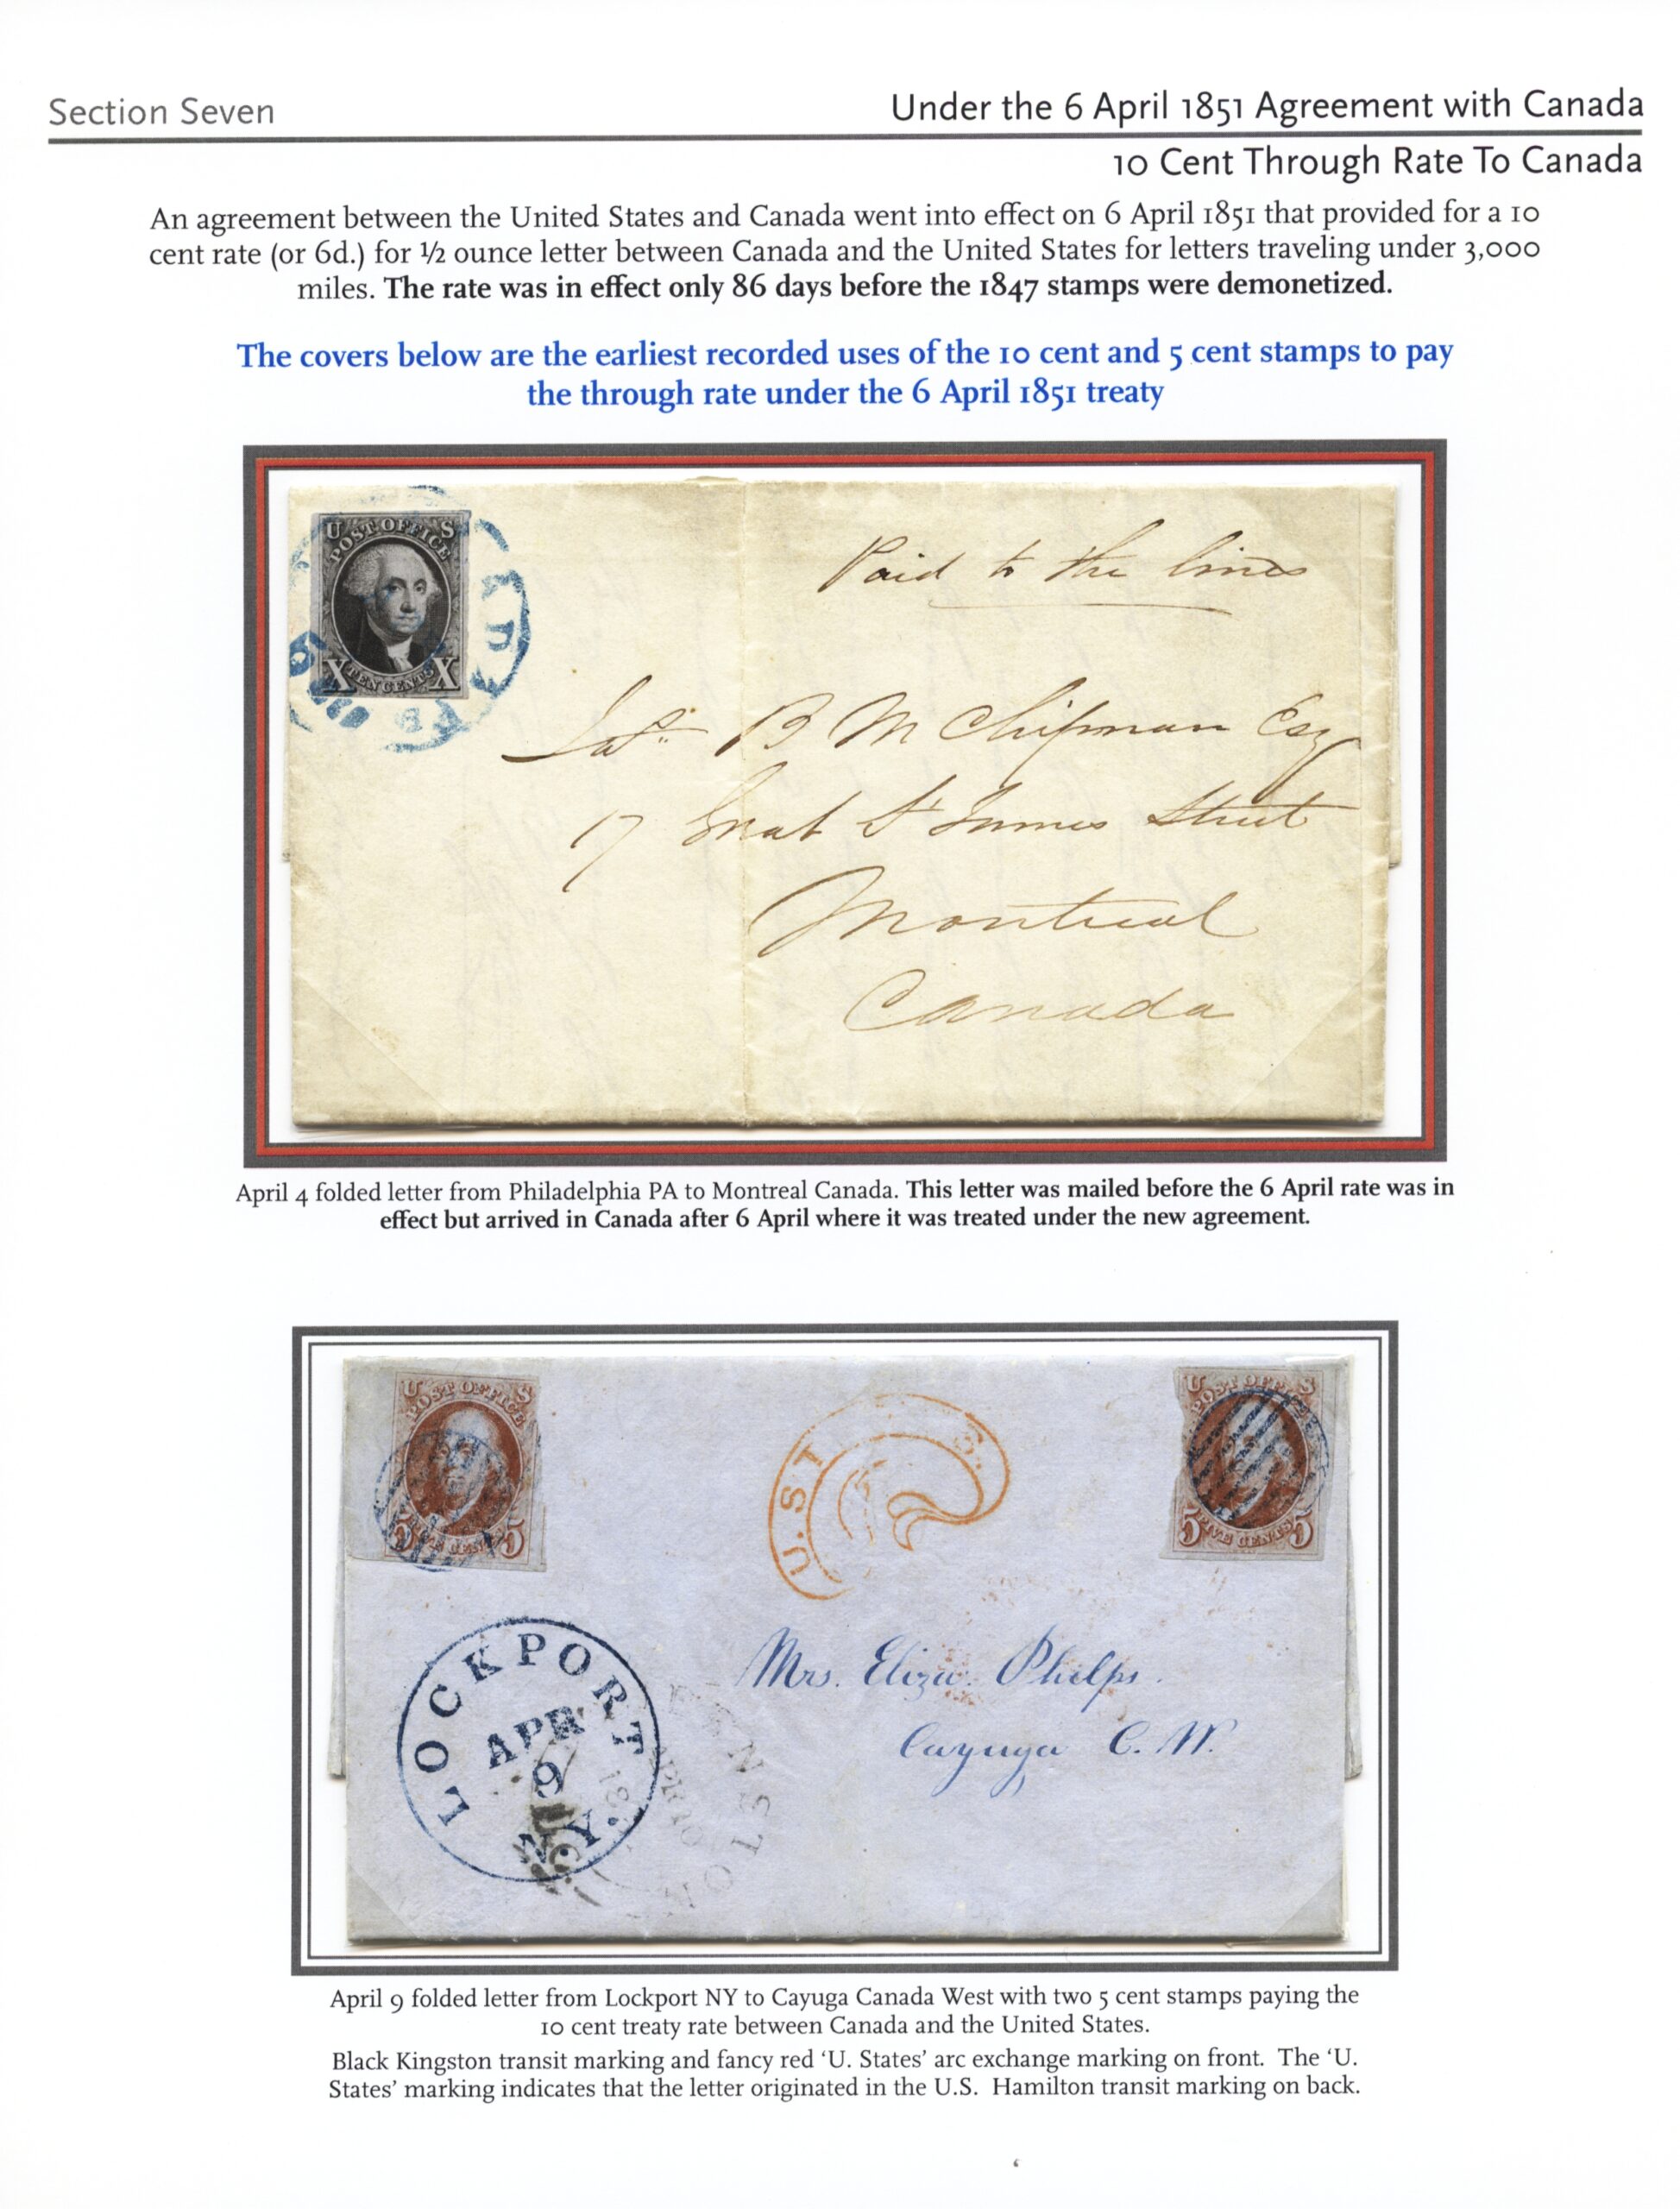 Section Seven
Under the 6 April 1851 Agreement with Canada
10 Cent Through Rate To Canada
An agreement between the United States and Canada went into effect on 6 April 1851 that provided for a 10
cent rate (or 6d.) for ½ ounce letter between Canada and the United States for letters traveling under 3,000
miles. The rate was in effect only 86 days before the 1847 stamps were demonetized.
The covers below are the earliest recorded uses of the 10 cent and 5 cent stamps to pay
the through rate under the 6 April 1851 treaty
U S
POST OFFICE
X TEN CENTS X
Paid to the lines
B M Chipman Esq
17 Great St James Street
Montreal
Canada
April 4 folded letter from Philadelphia PA to Montreal Canada. This letter was mailed before the 6 April rate was in
effect but arrived in Canada after 6 April where it was treated under the new agreement.
U S
POST OFFICE
5 FIVE CENTS 5
U. ST S.
U S
POST OFFICE
5 FIVE CENTS 5
LOCKPORT
APR
9
N.Y.
APR 10
Mrs. Eliza Phelps.
Cayuga C. W.
April 9 folded letter from Lockport NY to Cayuga Canada West with two 5 cent stamps paying the
10 cent treaty rate between Canada and the United States.
Black Kingston transit marking and fancy red ‘U. States’ arc exchange marking on front. The ‘U.
States’ marking indicates that the letter originated in the U.S. Hamilton transit marking on back.